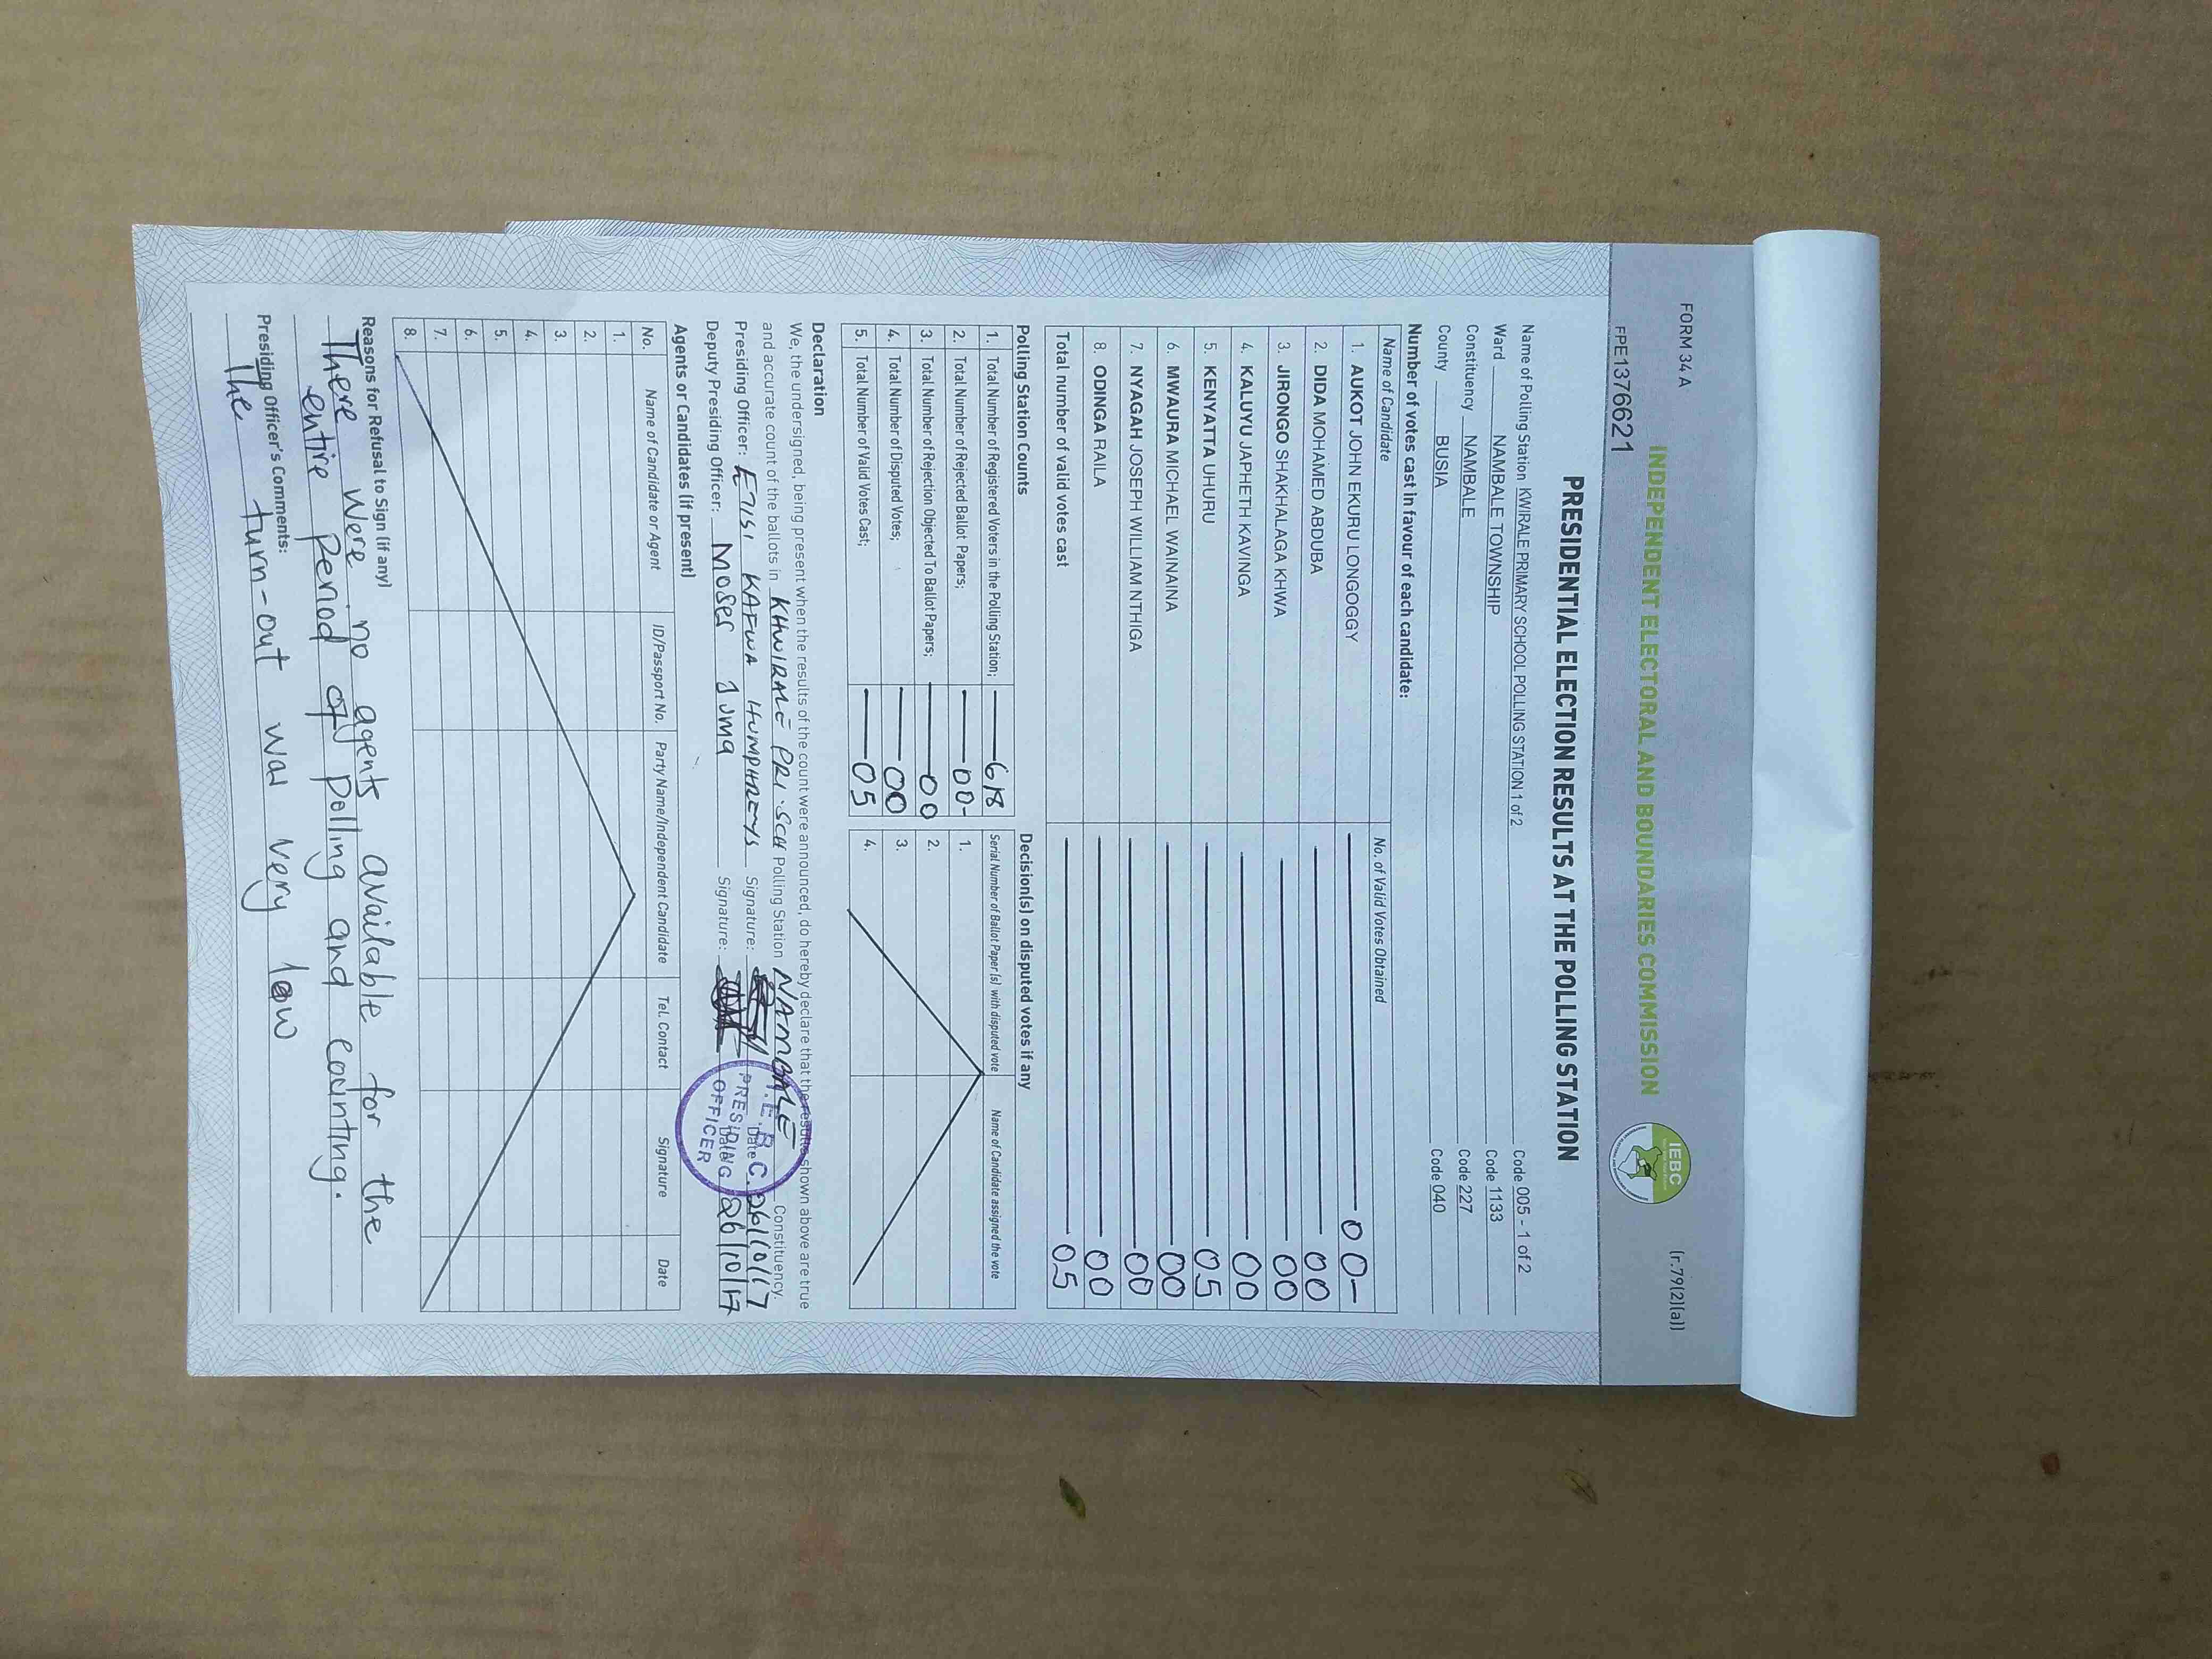 FORM 34 A
(r.79(2)(a))
FPE1376621
INDEPENDENT ELECTORAL AND BOUNDARIES COMMISSION
IEBC
PRESIDENTIAL ELECTION RESULTS AT THE POLLING STATION
Name of Polling Station KWIRALE PRIMARY SCHOOL POLLING STATION 1 of 2 Code 005 - 1 of 2
Ward NAMBALE TOWNSHIP Code 1133
Constituency NAMBALE Code 227
County BUSIA Code 040
Number of votes cast in favour of each candidate:
Name of Candidate No. of Valid Votes Obtained
1. AUKOT JOHN EKURU LONGOGGY 00-
2. DIDA MOHAMED ABDUBA 00
3. JIRONGO SHAKHALAGA KHWA 00
4. KALUYU JAPHETH KAVINGA 00
5. KENYATTA UHURU 05
6. MWAURA MICHAEL WAINAINA 00
7. NYAGAH JOSEPH WILLIAM NTHIGA 00
8. ODINGA RAILA 00
Total number of valid votes cast 05
Polling Station Counts
1. Total Number of Registered Voters in the Polling Station; 618
2. Total Number of Rejected Ballot Papers; 00-
3. Total Number of Rejection Objected To Ballot Papers; 00
4. Total Number of Disputed Votes; 00
5. Total Number of Valid Votes Cast; 05
Decision(s) on disputed votes if any
Serial Number of Ballot Paper(s) with disputed vote Name of Candidate assigned the vote
1.
2.
3.
4.
Declaration
We, the undersigned, being present when the results of the count were announced, do hereby declare that the results shown above are true
and accurate count of the ballots in KHWIRALE PRI. SCH Polling Station NAMBALE Constituency.
Presiding Officer: KAFWA HUMPHREYS Signature: Date 26/10/17
Deputy Presiding Officer: Moses Juma Signature: Date 26/10/17
I.E.B.C.
PRESIDING
OFFICER
Agents or Candidates (if present)
No. Name of Candidate or Agent ID/Passport No. Party Name/Independent Candidate Tel. Contact Signature Date
1.
2.
3.
4.
5.
6.
7.
8.
Reasons for Refusal to Sign (if any)
There were no agents available for the
entire period of polling and counting.
Presiding Officer's Comments:
The turn-out was very low